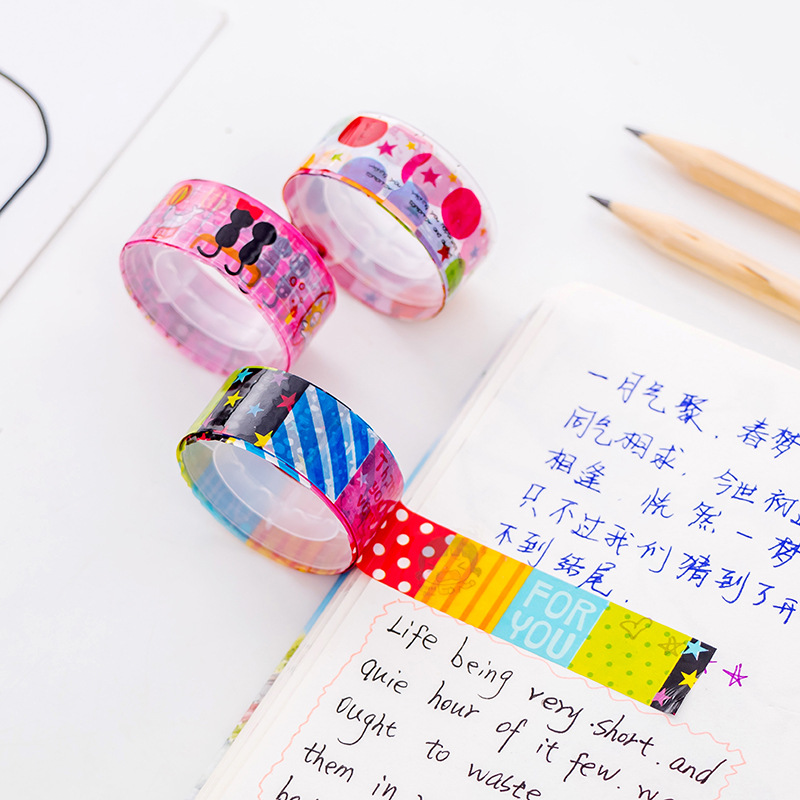 一月气聚．春梦
同气相求．今世初
相逢 恍然一梦
只不过我们猜到了开
不到结尾．
FOR
YOU
Life being very short. and
quie hour of it few. we
ought to waste
them in